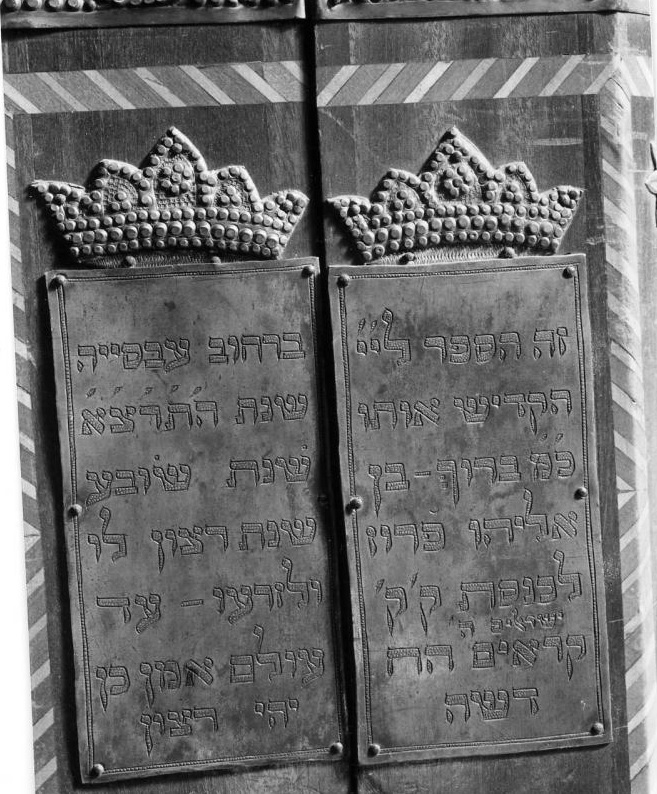 זה הספר ליי׳
הקדיש אותו
כ״מ ברוך-בן
אליהו פרוז
לכנסת ק׳ק׳
ישראלים ה׳
קראים הח
דשה
ברחוב עבסייה
שנת ה׳ת׳ר׳צ׳א׳
שנת שובע
שנת רצון לו
ולזרעו - עד
עולם אמן כן
יהי רצון